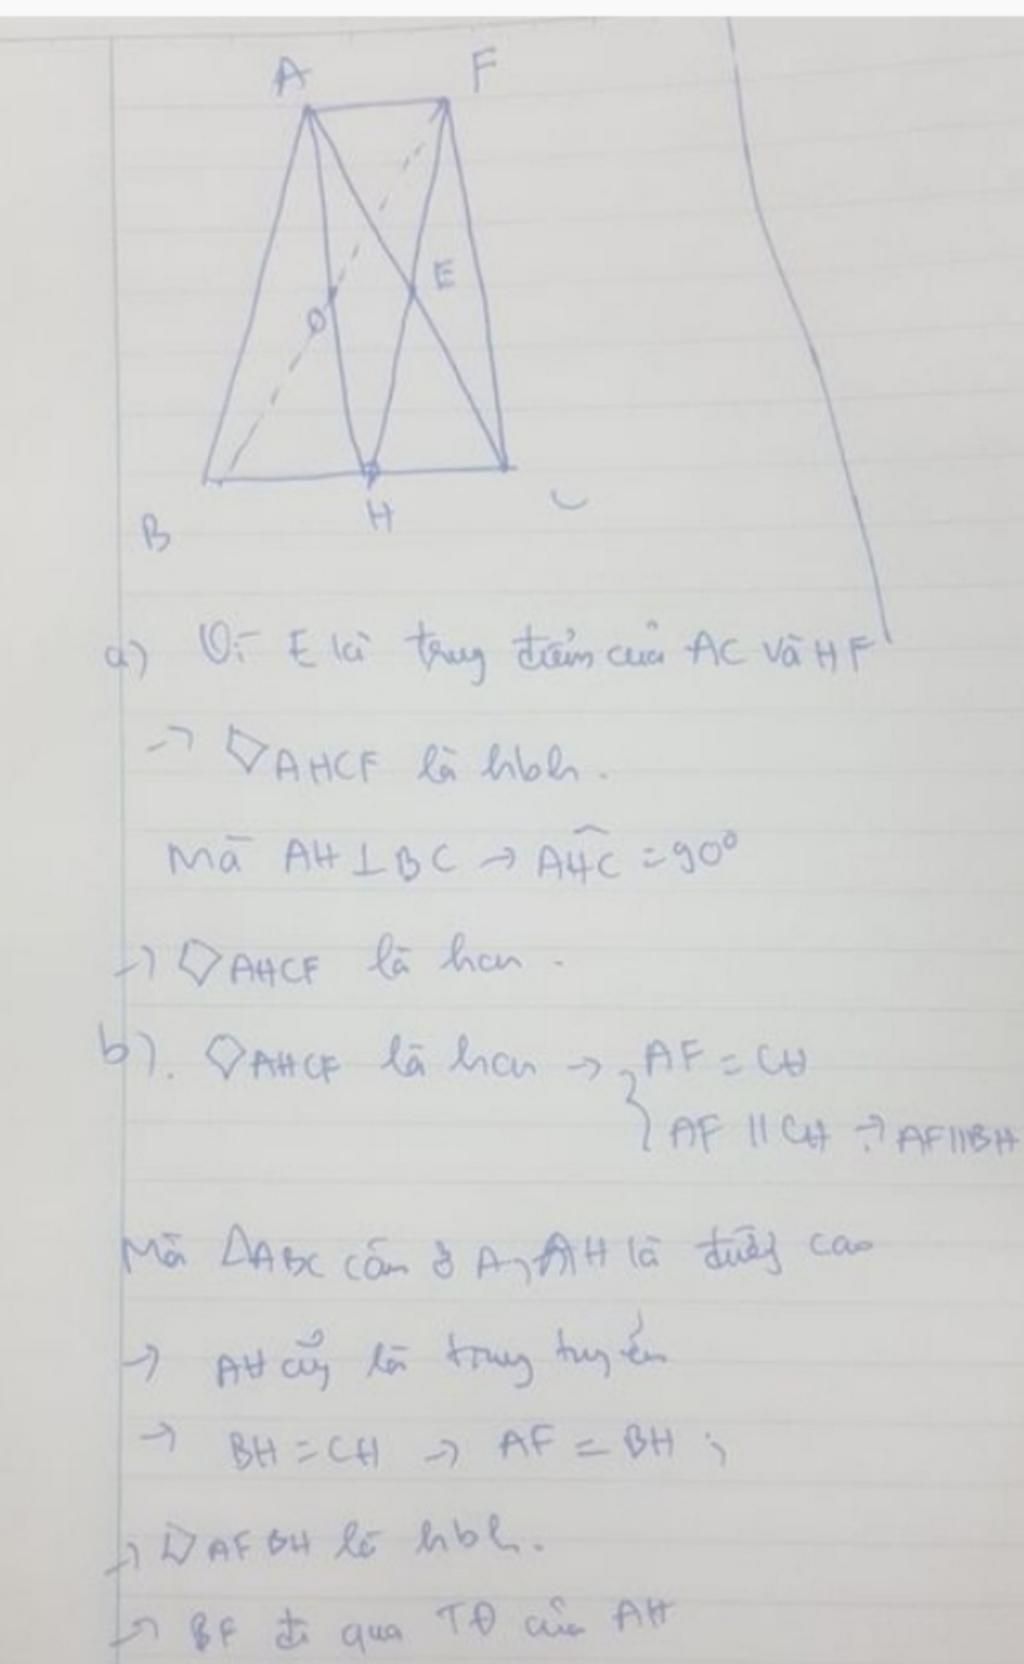 A F
E
O
H
B C
a) Vì E là trung điểm của AC và HF
→ ▱AHCF là hbh.
Mà AH ⊥ BC → AĤC = 90°
→ ▱AHCF là hcn.
b). ▱AHCF là hcn → { AF = CH
AF // CH → AF // BH
Mà △ABC cân ở A, AH là đường cao
→ AH cũng là trung tuyến
→ BH = CH → AF = BH ;
→ ▱AFBH là hbh.
→ BF đi qua TĐ của AH